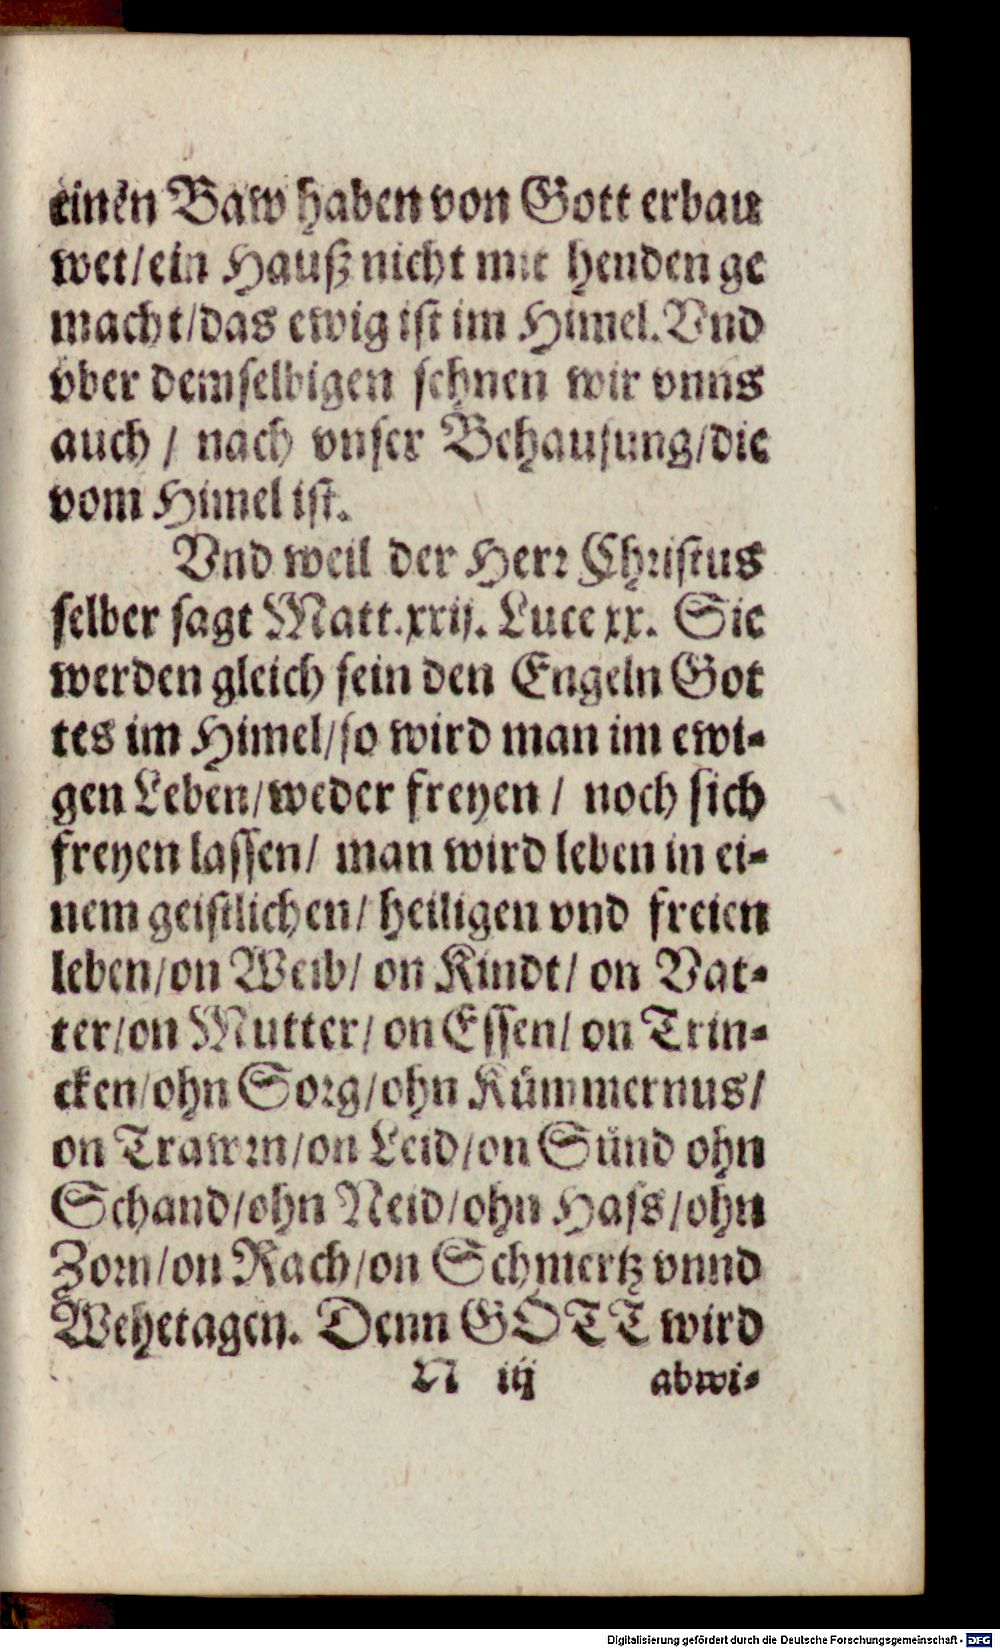 einen Baw haben von Gott erbau
wet/ein Hauß nicht mit henden ge
macht/das ewig ist im Himel. Vnd
vber demselbigen sehnen wir vnns
auch / nach vnser Behausung/die
vom Himel ist.
Vnd weil der Herr Christus
selber sagt Matt.xxij. Luce xx. Sie
werden gleich sein den Engeln Got
tes im Himel/so wird man im ewi-
gen Leben/weder freyen / noch sich
freyen lassen/ man wird leben in ei-
nem geistlichen/ heiligen vnd freien
leben/on Weib/ on Kindt/ on Vat-
ter/on Mutter/ on Essen/ on Trin-
cken/ohn Sorg/ohn Kümmernus/
on Trawrn/on Leid/on Sünd ohn
Schand/ohn Neid/ohn Hass/ohn
Zorn/on Rach/on Schmertz vnnd
Wehetagen. Denn GOTT wird
N iij abwi-
Digitalisierung gefördert durch die Deutsche Forschungsgemeinschaft - DFG